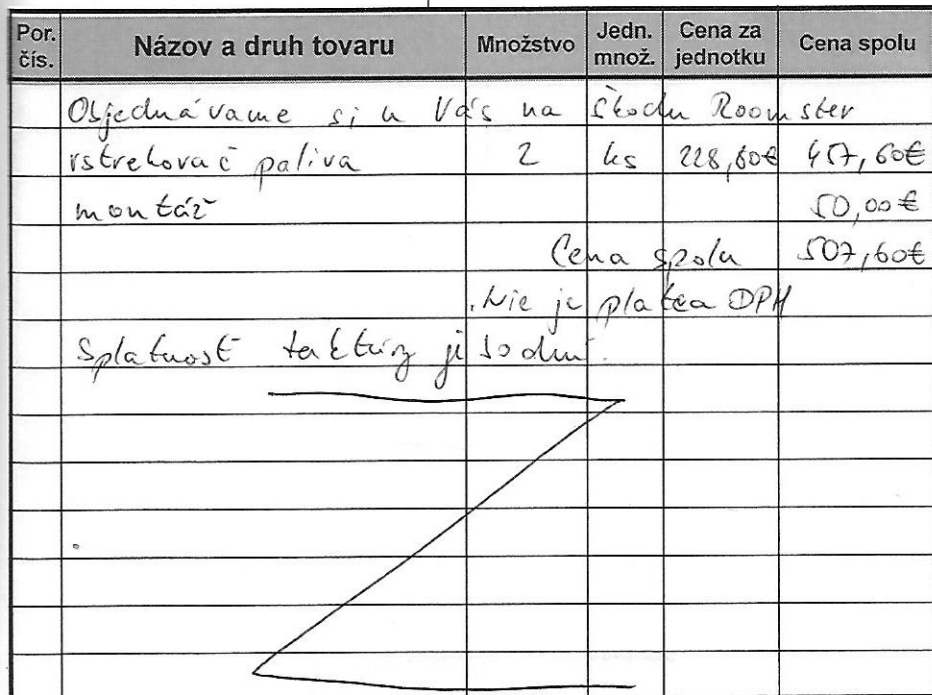 Por. čís. Názov a druh tovaru Množstvo Jedn. množ. Cena za jednotku Cena spolu
Objednávame si u Vás na Škodu Roomster
vstrekovač paliva 2 ks 228,80€ 457,60€
montáž 50,00€
Cena spolu 507,60€
Nie je platca DPH
Splatnosť faktúry je dní.